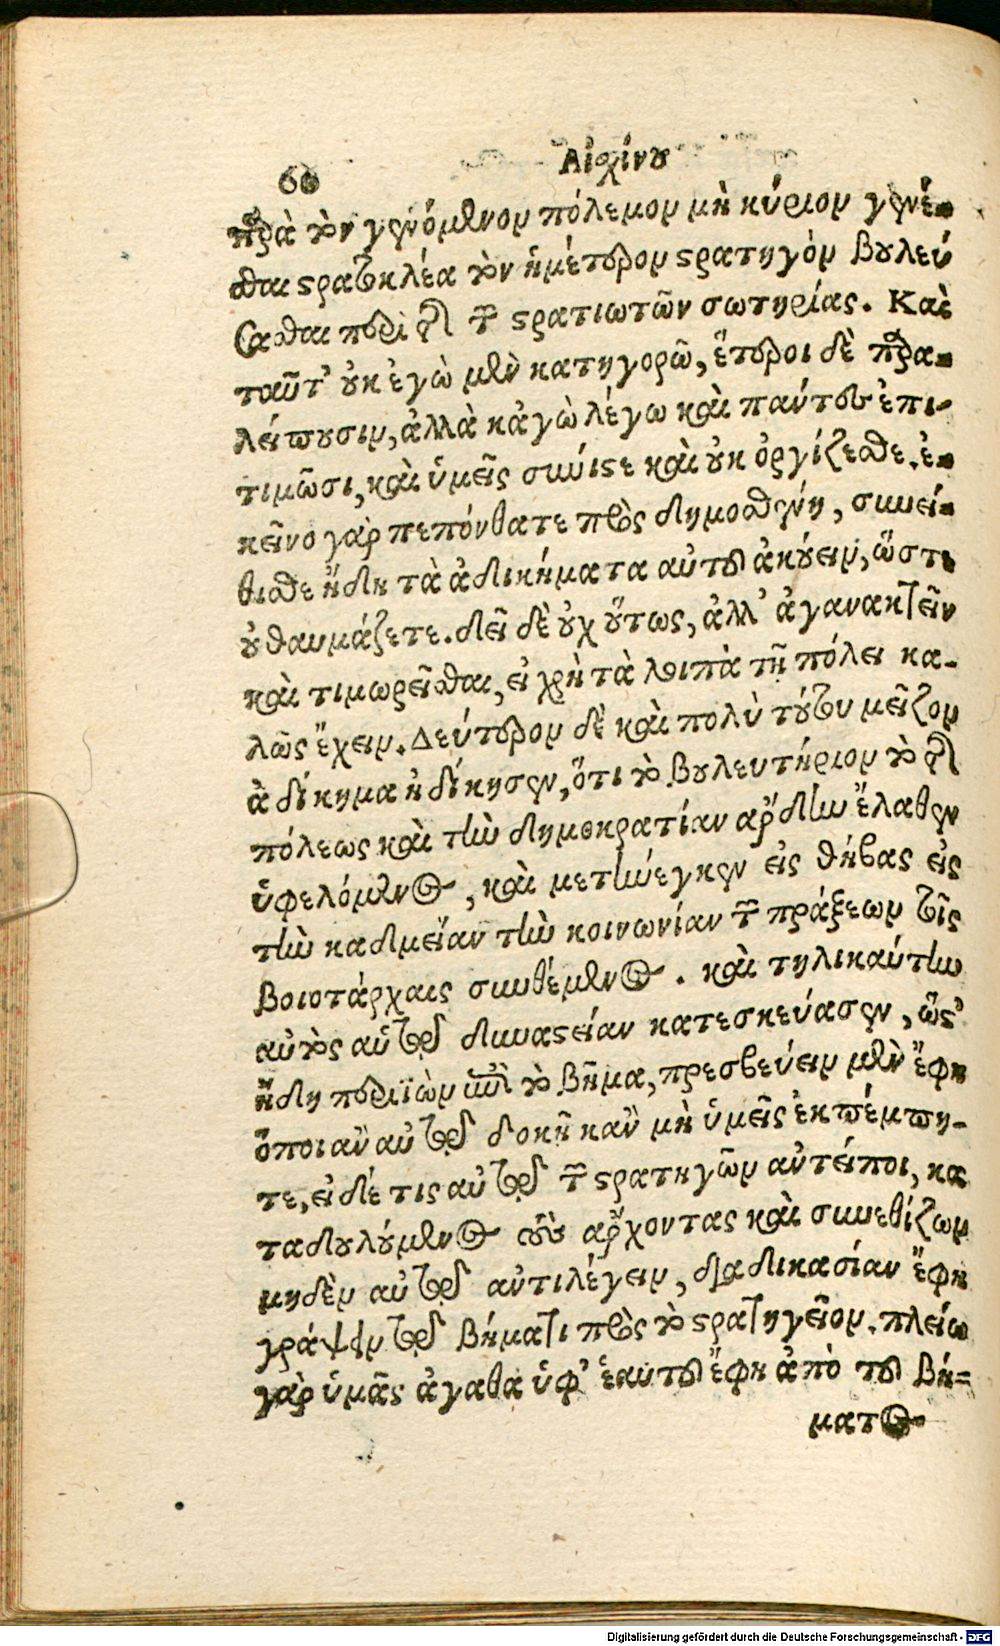 60 Αἰσχίνου
παρὰ τὸν γενόμενον πόλεμον μὴ κύριον γενέ-
σθαι στρατοκλέα τὸν ἡμέτερον στρατηγὸν βουλεύ
σασθαι περὶ τῆς τῶν στρατιωτῶν σωτηρίας. Καὶ
ταῦτ' οὐκ ἐγὼ μὲν κατηγορῶ, ἕτεροι δὲ παρα-
λείπουσιν, ἀλλὰ κἀγὼ λέγω καὶ πάντες ἐπι-
τιμῶσι, καὶ ὑμεῖς σύνιστε καὶ οὐκ ὀργίζεσθε. ἐ-
κεῖνο γὰρ πεπόνθατε πρὸς δημοσθένη, συνεί-
θισθε ἤδη τὰ ἀδικήματα αὐτοῦ ἀκούειν, ὥστε
οὐ θαυμάζετε. δεῖ δὲ οὐχ οὕτως, ἀλλ' ἀγανακτεῖν
καὶ τιμωρεῖσθαι, εἰ χρὴ τὰ λοιπὰ τῇ πόλει κα-
λῶς ἔχειν. Δεύτερον δὲ καὶ πολὺ τούτου μεῖζον
ἀδίκημα ἠδίκησεν, ὅτι τὸ βουλευτήριον τὸ τῆς
πόλεως καὶ τὴν δημοκρατίαν ἄρδην ἔλαθεν
ὑφελόμενος, καὶ μετήνεγκεν εἰς θήβας εἰς
τὴν καδμείαν τὴν κοινωνίαν τῶν πράξεων τοῖς
βοιοτάρχαις συνθέμενος. καὶ τηλικαύτην
αὐτὸς αὑτῷ δυναστείαν κατεσκεύασεν, ὥστ'
ἤδη περιϊὼν ἐπὶ τὸ βῆμα, πρεσβεύειν μὲν ἔφη
ὅποι ἂν αὐτῷ δοκῇ κἂν μὴ ὑμεῖς ἐκπέμπη-
τε, εἰ δέ τις αὐτῷ τῶν στρατηγῶν ἀντείποι, κα
ταδουλούμενος τοὺς ἄρχοντας καὶ συνεθίζων
μηδὲν αὐτῷ ἀντιλέγειν, διαδικασίαν ἔφη
γράψειν τῷ βήματι πρὸς τὸ στρατηγεῖον. πλείω
γὰρ ὑμᾶς ἀγαθὰ ὑφ' ἑαυτοῦ ἔφη ἀπὸ τοῦ βή-
ματος
Digitalisierung gefördert durch die Deutsche Forschungsgemeinschaft - DFG